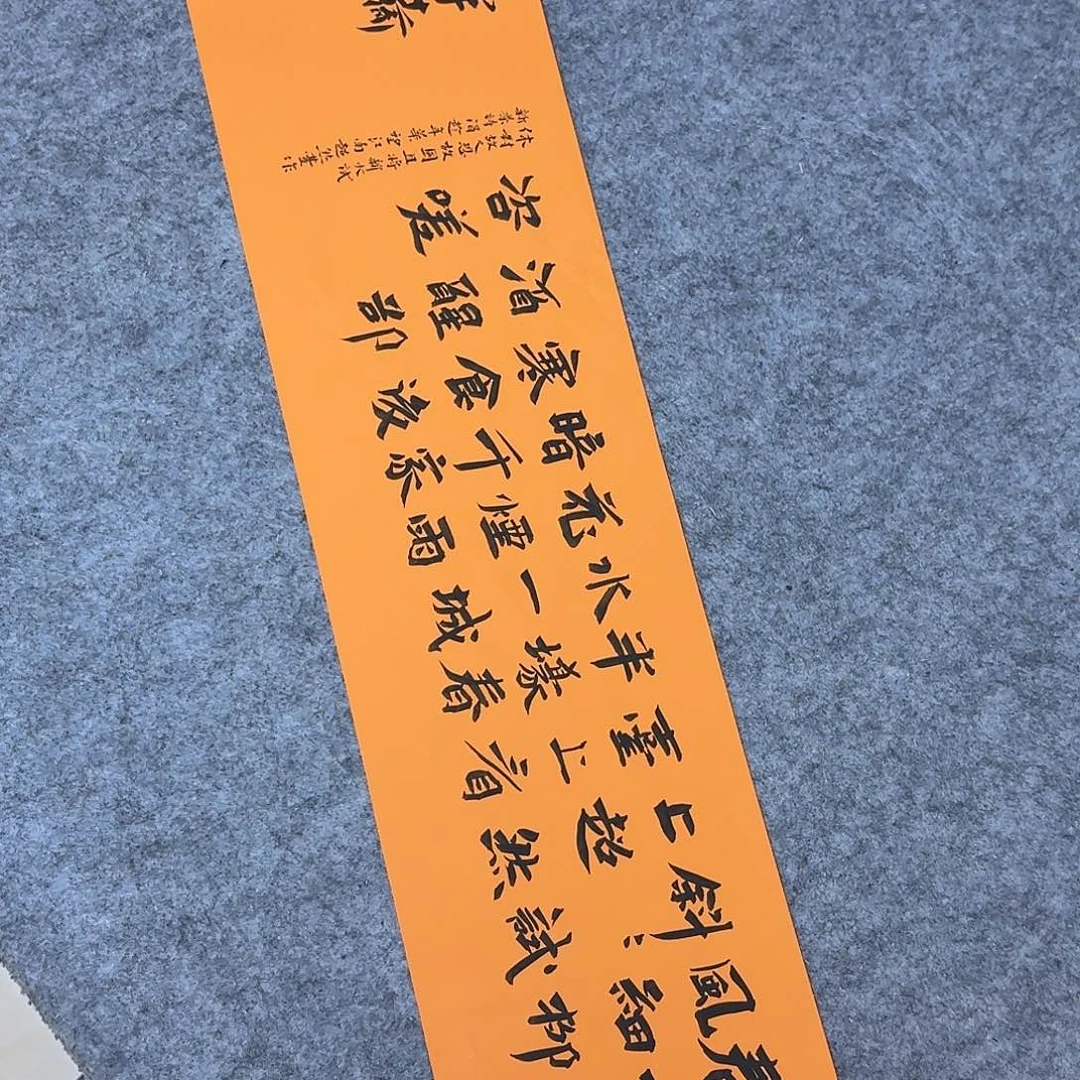 春
風細柳
斜〻試
上超然
臺上看
半壕春
水一城
花煙雨
暗千家
寒食後
酒醒卻
咨嗟
休對故人思故國且將新火試
新茶詩酒趁年華望江南超然臺作
齋